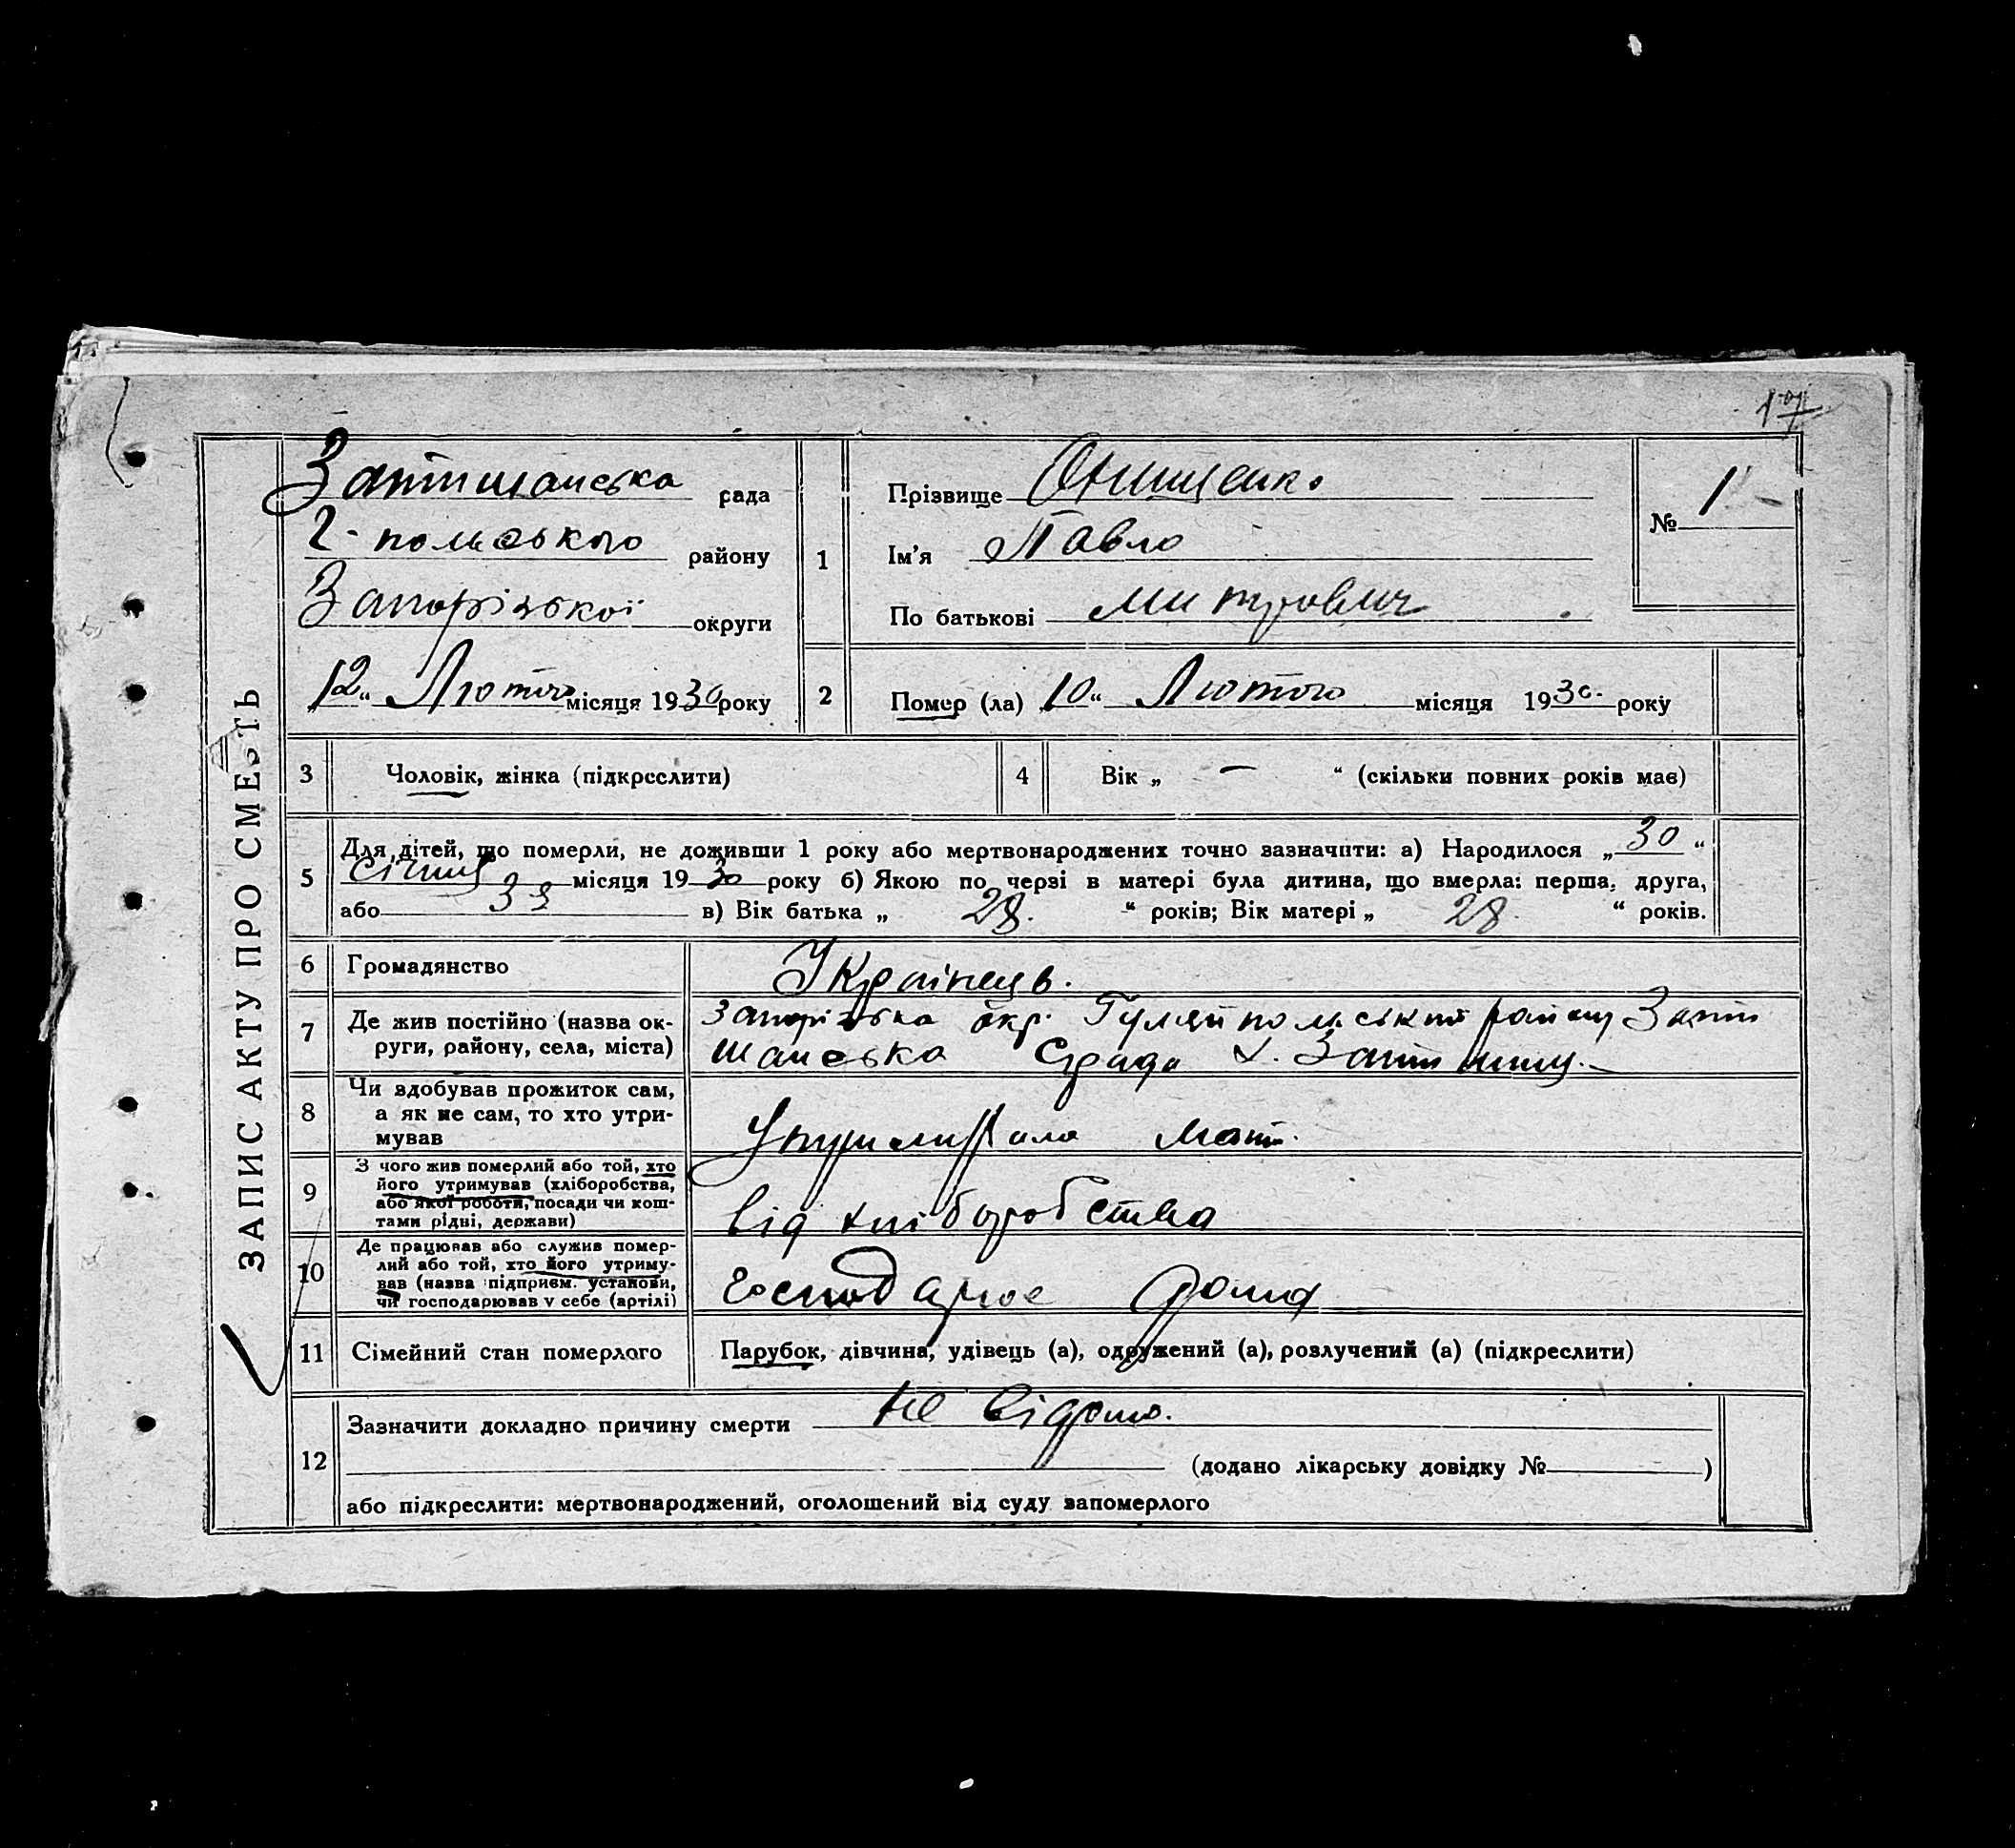 ЗАПИС АКТУ ПРО СМЕРТЬ
Затишанська рада
Г-польського району
Запорізької округи
„12“ Лютого місяця 1930 року
1
Прізвище Онищенко
Ім'я Павло
По батькові Митрович
№ 1
2
Помер (ла) „10“ Лютого місяця 1930. року
3
Чоловік, жінка (підкреслити)
4
Вік „ — “ (скільки повних років має)
5
Для дітей, що померли, не доживши 1 року або мертвонароджених точно зазначити: а) Народилося „30“
Січня місяця 1930 року б) Якою по черзі в матері була дитина, що вмерла: перша, друга,
або в) Вік батька „ 28. “ років; Вік матері „ 28. “ років.
6
Громадянство
Українець.
7
Де жив постійно (назва округи, району, села, міста)
Запорізька окр. Гуляйпольський району Зати
шанська С/рада х. Затишшя.
8
Чи здобував прожиток сам,
а як не сам, то хто утри-
мував
Утримувала мати.
9
З чого жив померлий або той, хто
його утримував (хліборобства,
або якої роботи, посади чи кош-
тами рідні, держави)
від хліборобства
10
Де працював або служив помер-
лий або той, хто його утриму-
вав (назва підприєм. установи,
чи господарював у себе (артілі)
Господарює дома
11
Сімейний стан померлого
Парубок, дівчина, удівець (а), одружений (а), розлучений (а) (підкреслити)
12
Зазначити докладно причину смерти не відомо.
(додано лікарську довідку № )
або підкреслити: мертвонароджений, оголошений від суду запомерлого